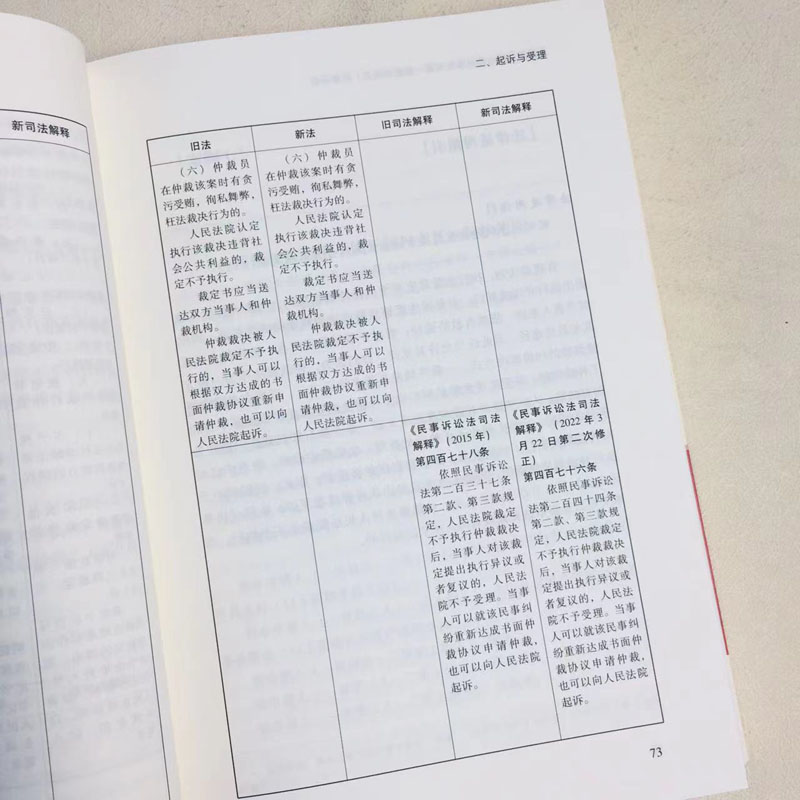 新司法解释
二、起诉与受理
旧法
新法
旧司法解释
新司法解释
（六）仲裁员
在仲裁该案时有贪
污受贿，徇私舞弊，
枉法裁决行为的。
人民法院认定
执行该裁决违背社
会公共利益的，裁
定不予执行。
裁定书应当送
达双方当事人和仲
裁机构。
仲裁裁决被人
民法院裁定不予执
行的，当事人可以
根据双方达成的书
面仲裁协议重新申
请仲裁，也可以向
人民法院起诉。
（六）仲裁员
在仲裁该案时有贪
污受贿，徇私舞弊，
枉法裁决行为的。
人民法院认定
执行该裁决违背社
会公共利益的，裁
定不予执行。
裁定书应当送
达双方当事人和仲
裁机构。
仲裁裁决被人
民法院裁定不予执
行的，当事人可以
根据双方达成的书
面仲裁协议重新申
请仲裁，也可以向
人民法院起诉。
《民事诉讼法司法
解释》（2015年）
第四百七十八条
依照民事诉讼
法第二百三十七条
第二款、第三款规
定，人民法院裁定
不予执行仲裁裁决
后，当事人对该裁
定提出执行异议或
者复议的，人民法
院不予受理。当事
人可以就该民事纠
纷重新达成书面仲
裁协议申请仲裁，
也可以向人民法院
起诉。
《民事诉讼法司法
解释》（2022年3
月22日第二次修
正）
第四百七十六条
依照民事诉讼
法第二百四十四条
第二款、第三款规
定，人民法院裁定
不予执行仲裁裁决
后，当事人对该裁
定提出执行异议或
者复议的，人民法
院不予受理。当事
人可以就该民事纠
纷重新达成书面仲
裁协议申请仲裁，
也可以向人民法院
起诉。
73